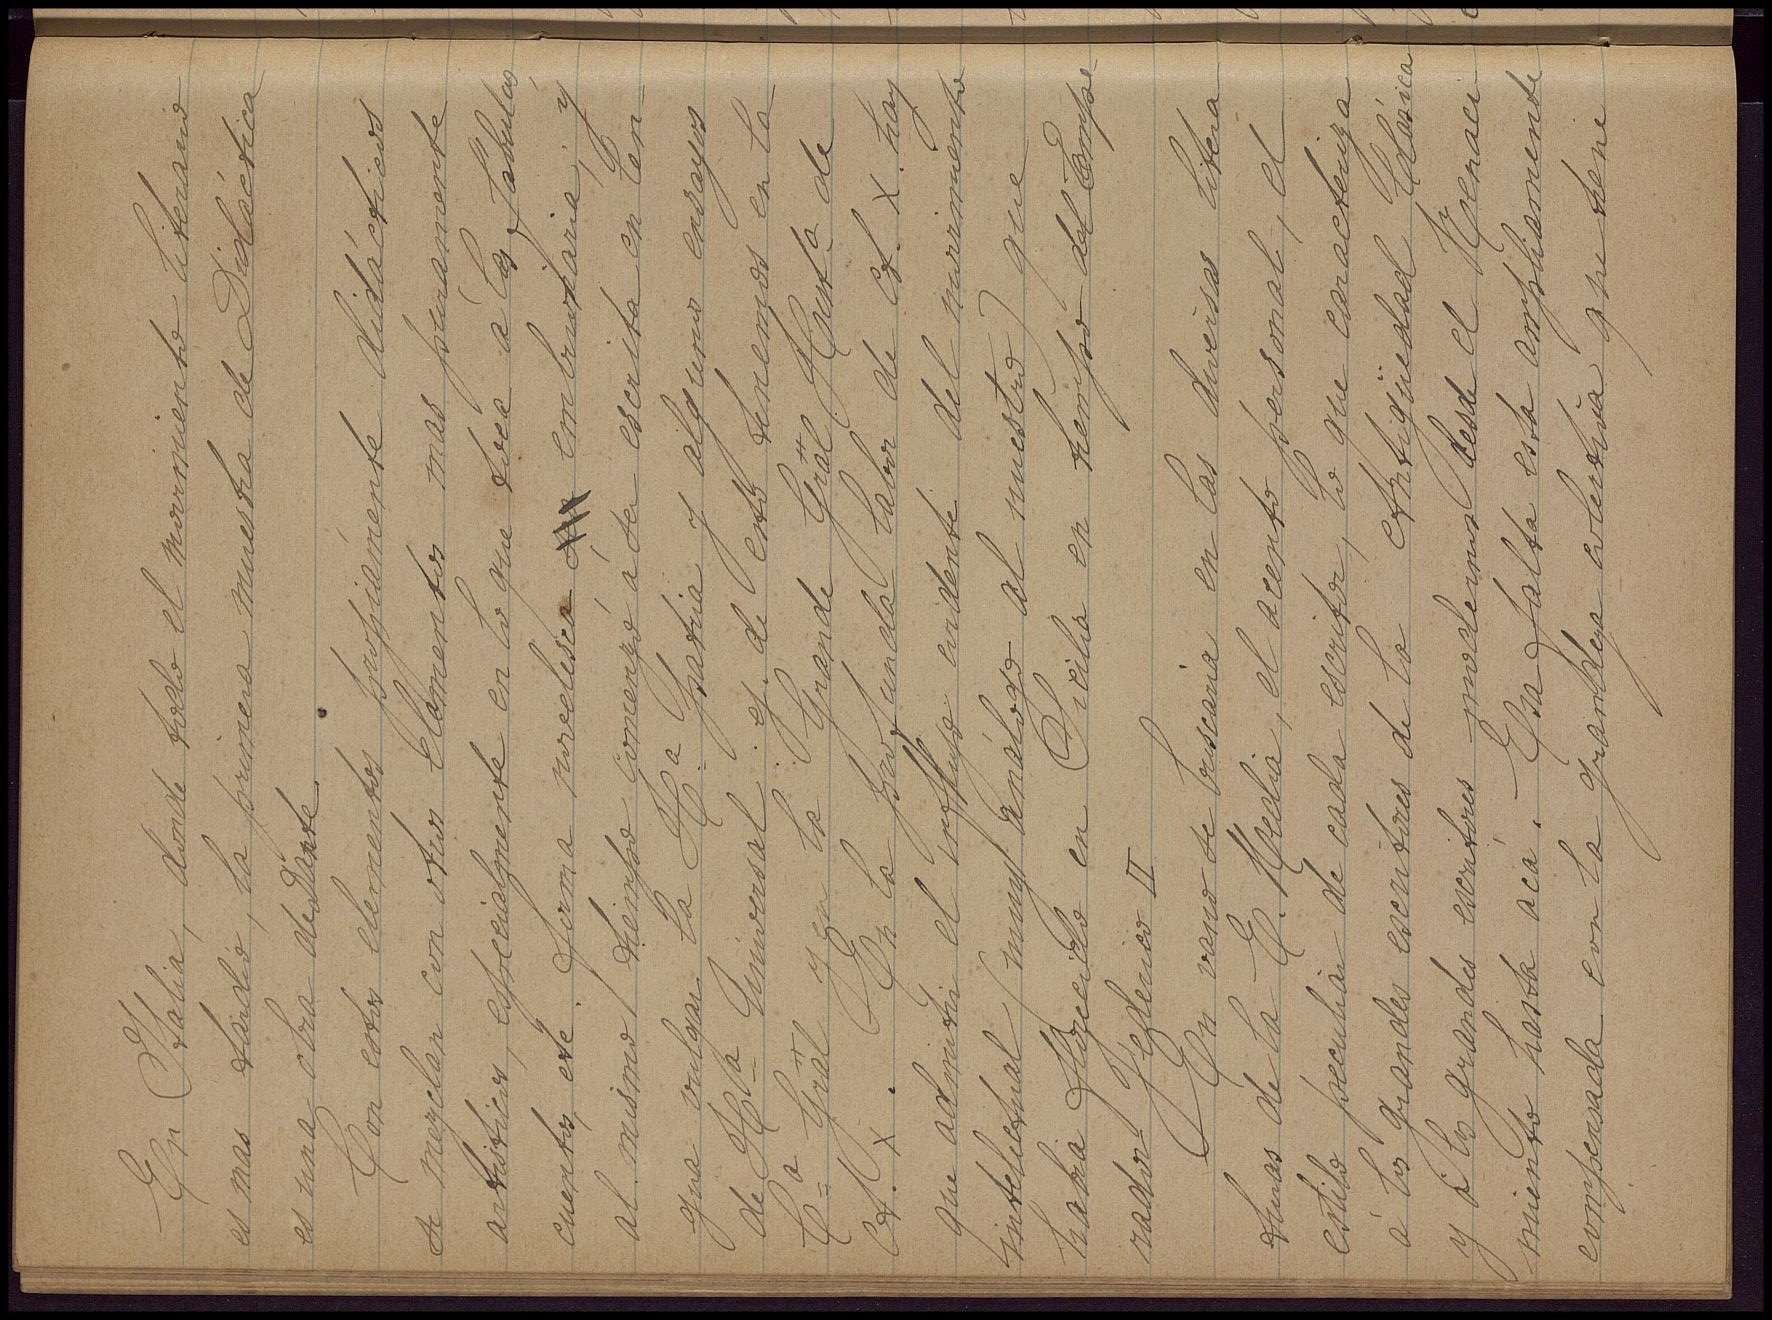 En Italia, donde todo el movimiento literario
es mas tardio, la primera muestra de Didáctica
es una obra de Dante.
Con estos elementos propiamente didácticos
se mezclan con otros elementos mas puramente
artísticos, especialmente en lo que toca a las fabulas
cuentos, etc. forma novelesca embrionaria; y
al mismo tiempo comenzó á ser escrita en len-
gua vulgar la H.ª Patria y algunos ensayos
de H.ª Universal. ej. de esto tenemos en la
C.ª Gral y en la Grande Gral Hist.ª de
Alf. X. En la profunda labor de Alf. X. hay
que admitir el influjo evidente del movimiento
intelectual (muy análogo al nuestro) que
habia florecido en Sicilia en tiempo del Empe-
rador Federico II
En vano se buscaria en las diversas litera
turas de la E. Media, el acento personal, el
estilo peculiar de cada escritor, lo que caracteriza
á los grandes escritores de la Antigüedad Clásica
y á los grandes escritores modernos desde el Renaci
miento hasta acá. Esa falta está ampliamente
compensada con la grandeza colectiva que tiene